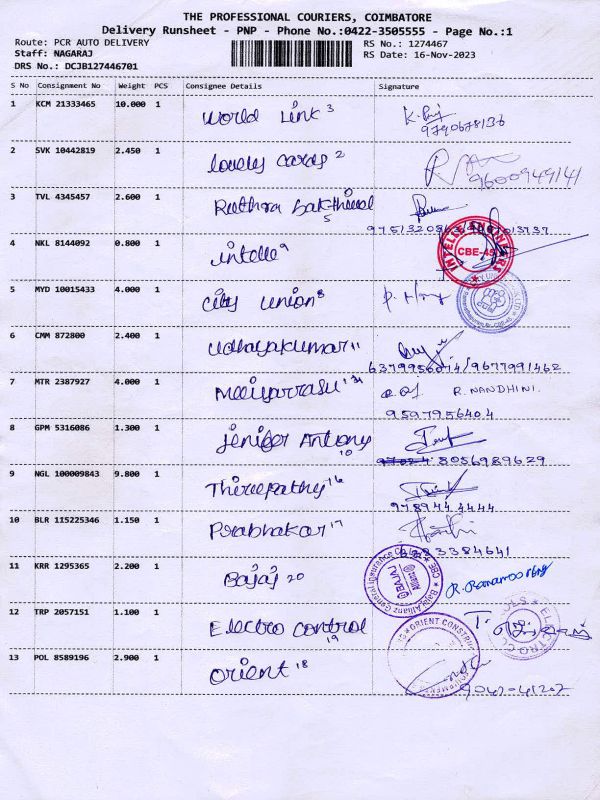 THE PROFESSIONAL COURIERS, COIMBATORE
Delivery Runsheet - PNP - Phone No.:0422-3505555 - Page No.:1
Route: PCR AUTO DELIVERY RS No.: 1274467
Staff: NAGARAJ RS Date: 16-Nov-2023
DRS No.: DCJB127446701
S No Consignment No Weight PCS Consignee Details Signature
1 KCM 21333465 10.000 1 World Link 3
9790678136
2 SVK 10442819 2.450 1 lovely cards 2
9600949141
3 TVL 4345457 2.600 1 Ruthra 5
4 NKL 8144092 0.800 1 intelle 9
INTELLE ENGINEERS CBE-45
5 MYD 10015433 4.000 1 city union 8
6 CMM 872800 2.400 1 udhayakumar 11
/9677991462
7 MTR 2387927 4.000 1 Meiyarrasu
R. NANDHINI.
9597956404
8 GPM 5316086 1.300 1 jenifer Antony 10
8056989629
9 NGL 100009843 9.800 1 Thirupathy 16
978944 4444
10 BLR 115225346 1.150 1 Prabhakar 17
11 KRR 1295365 2.200 1 Bajaj 20
BAJAJ Allianz
12 TRP 2057151 1.100 1 Electro control 19
13 POL 8589196 2.900 1 orient 18
ORIENT